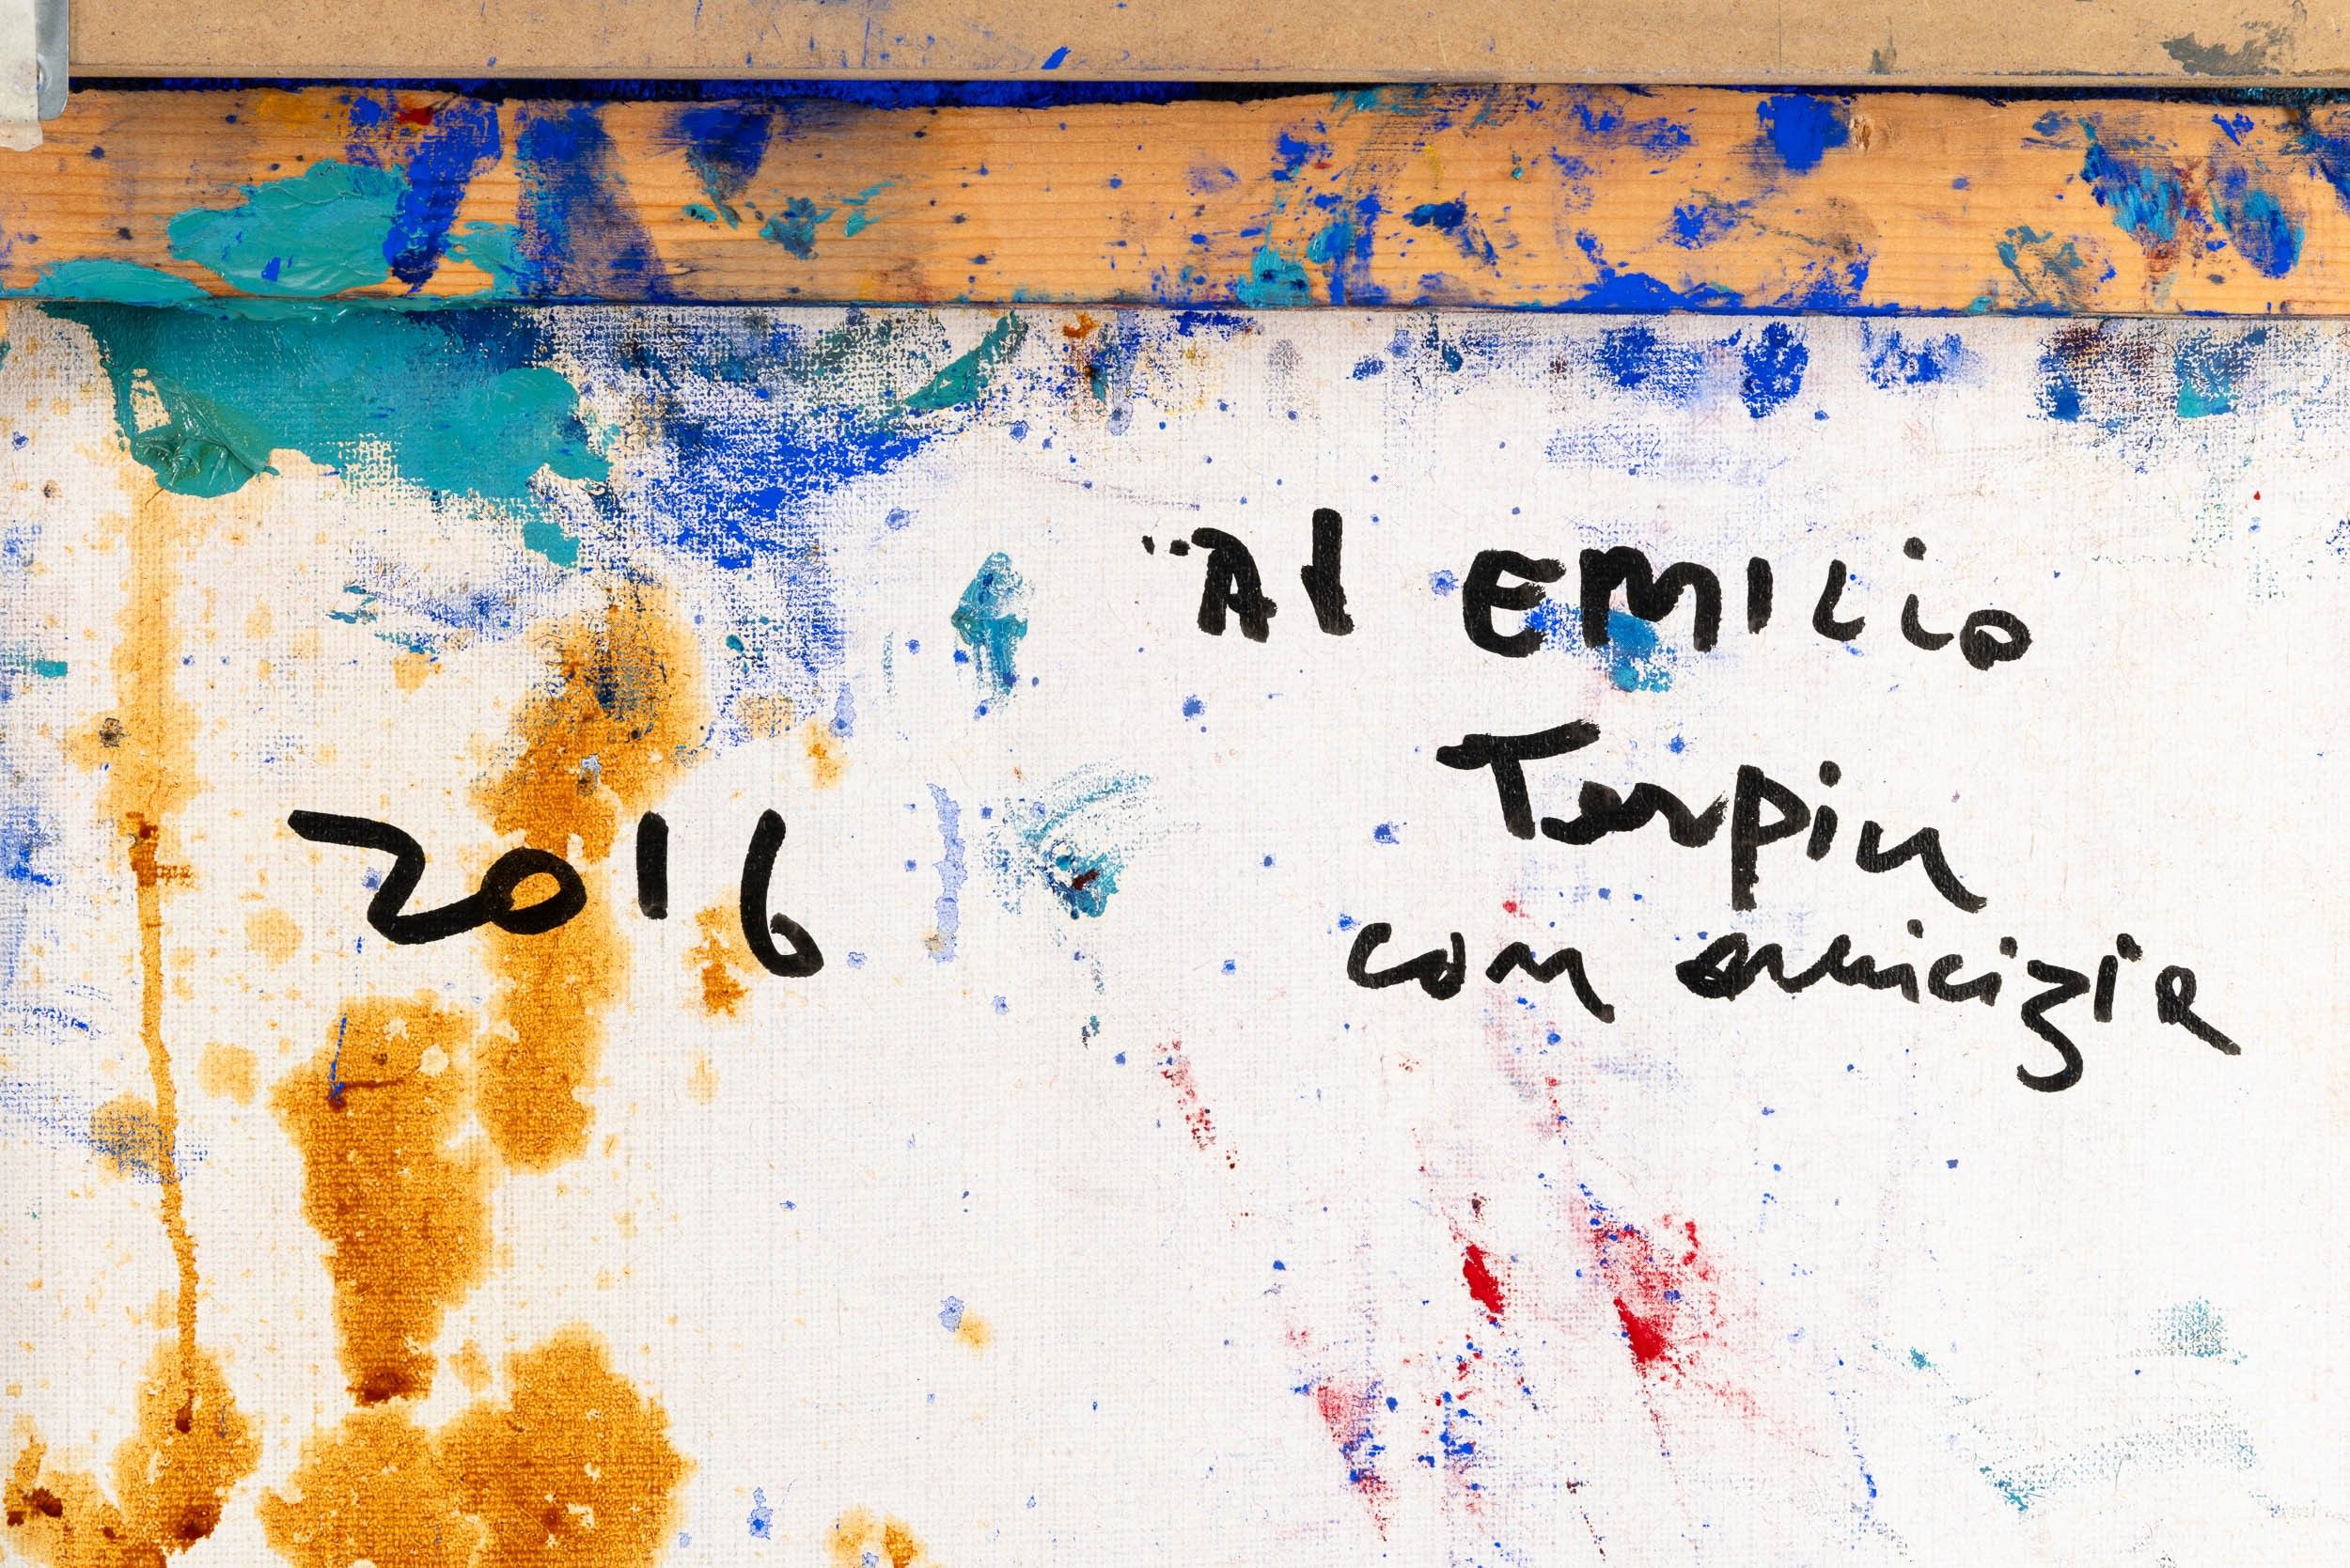 2016
"Al EMILio
Terpin
con amicizia